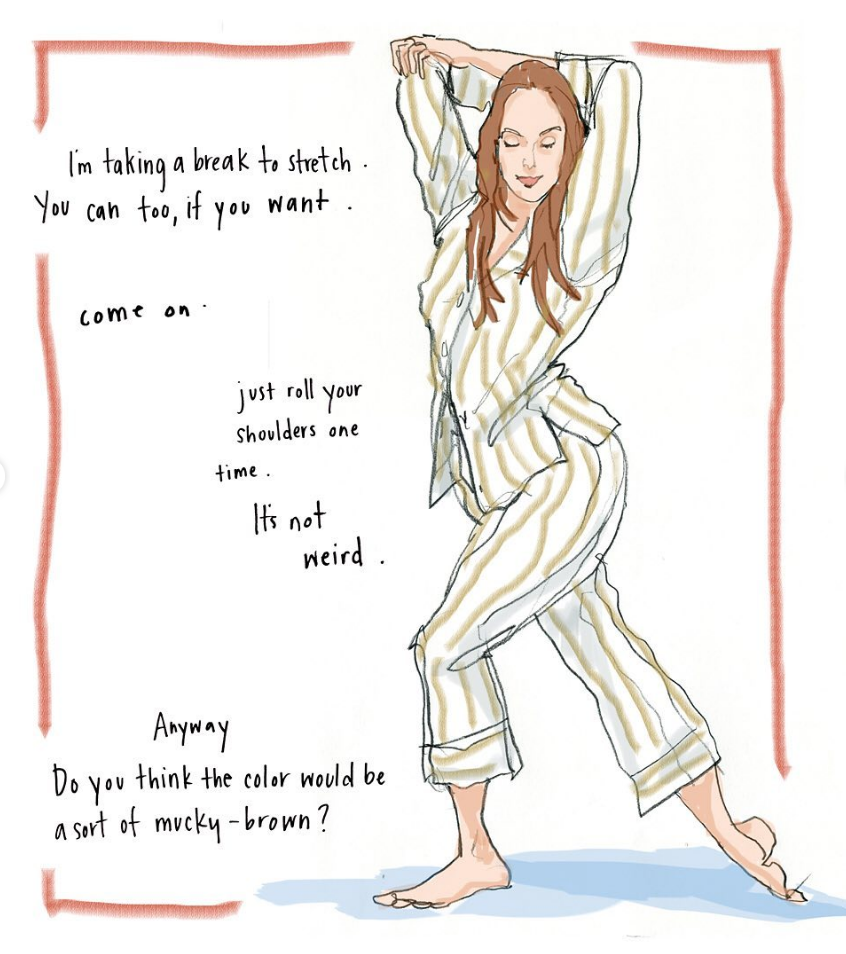 I'm taking a break to stretch.
You can too, if you want.
come on.
just roll your
shoulders one
time.
It's not
weird.
Anyway
Do you think the color would be
a sort of mucky-brown?